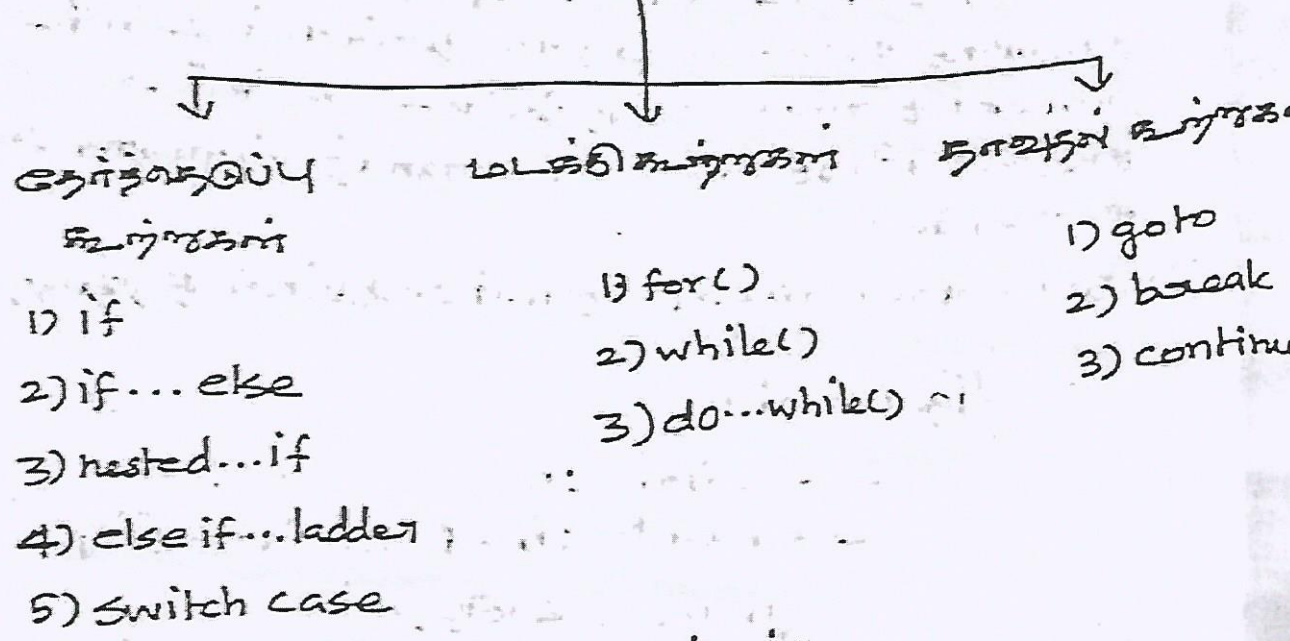 தேர்ந்தெடுப்பு
கூற்றுகள்
1) if
2) if... else
3) nested...if
4) else if...ladder
5) switch case
மடக்கி கூற்றுகள்
1) for()
2) while()
3) do...while()
தாவுதல்
1) goto
2) break
3)